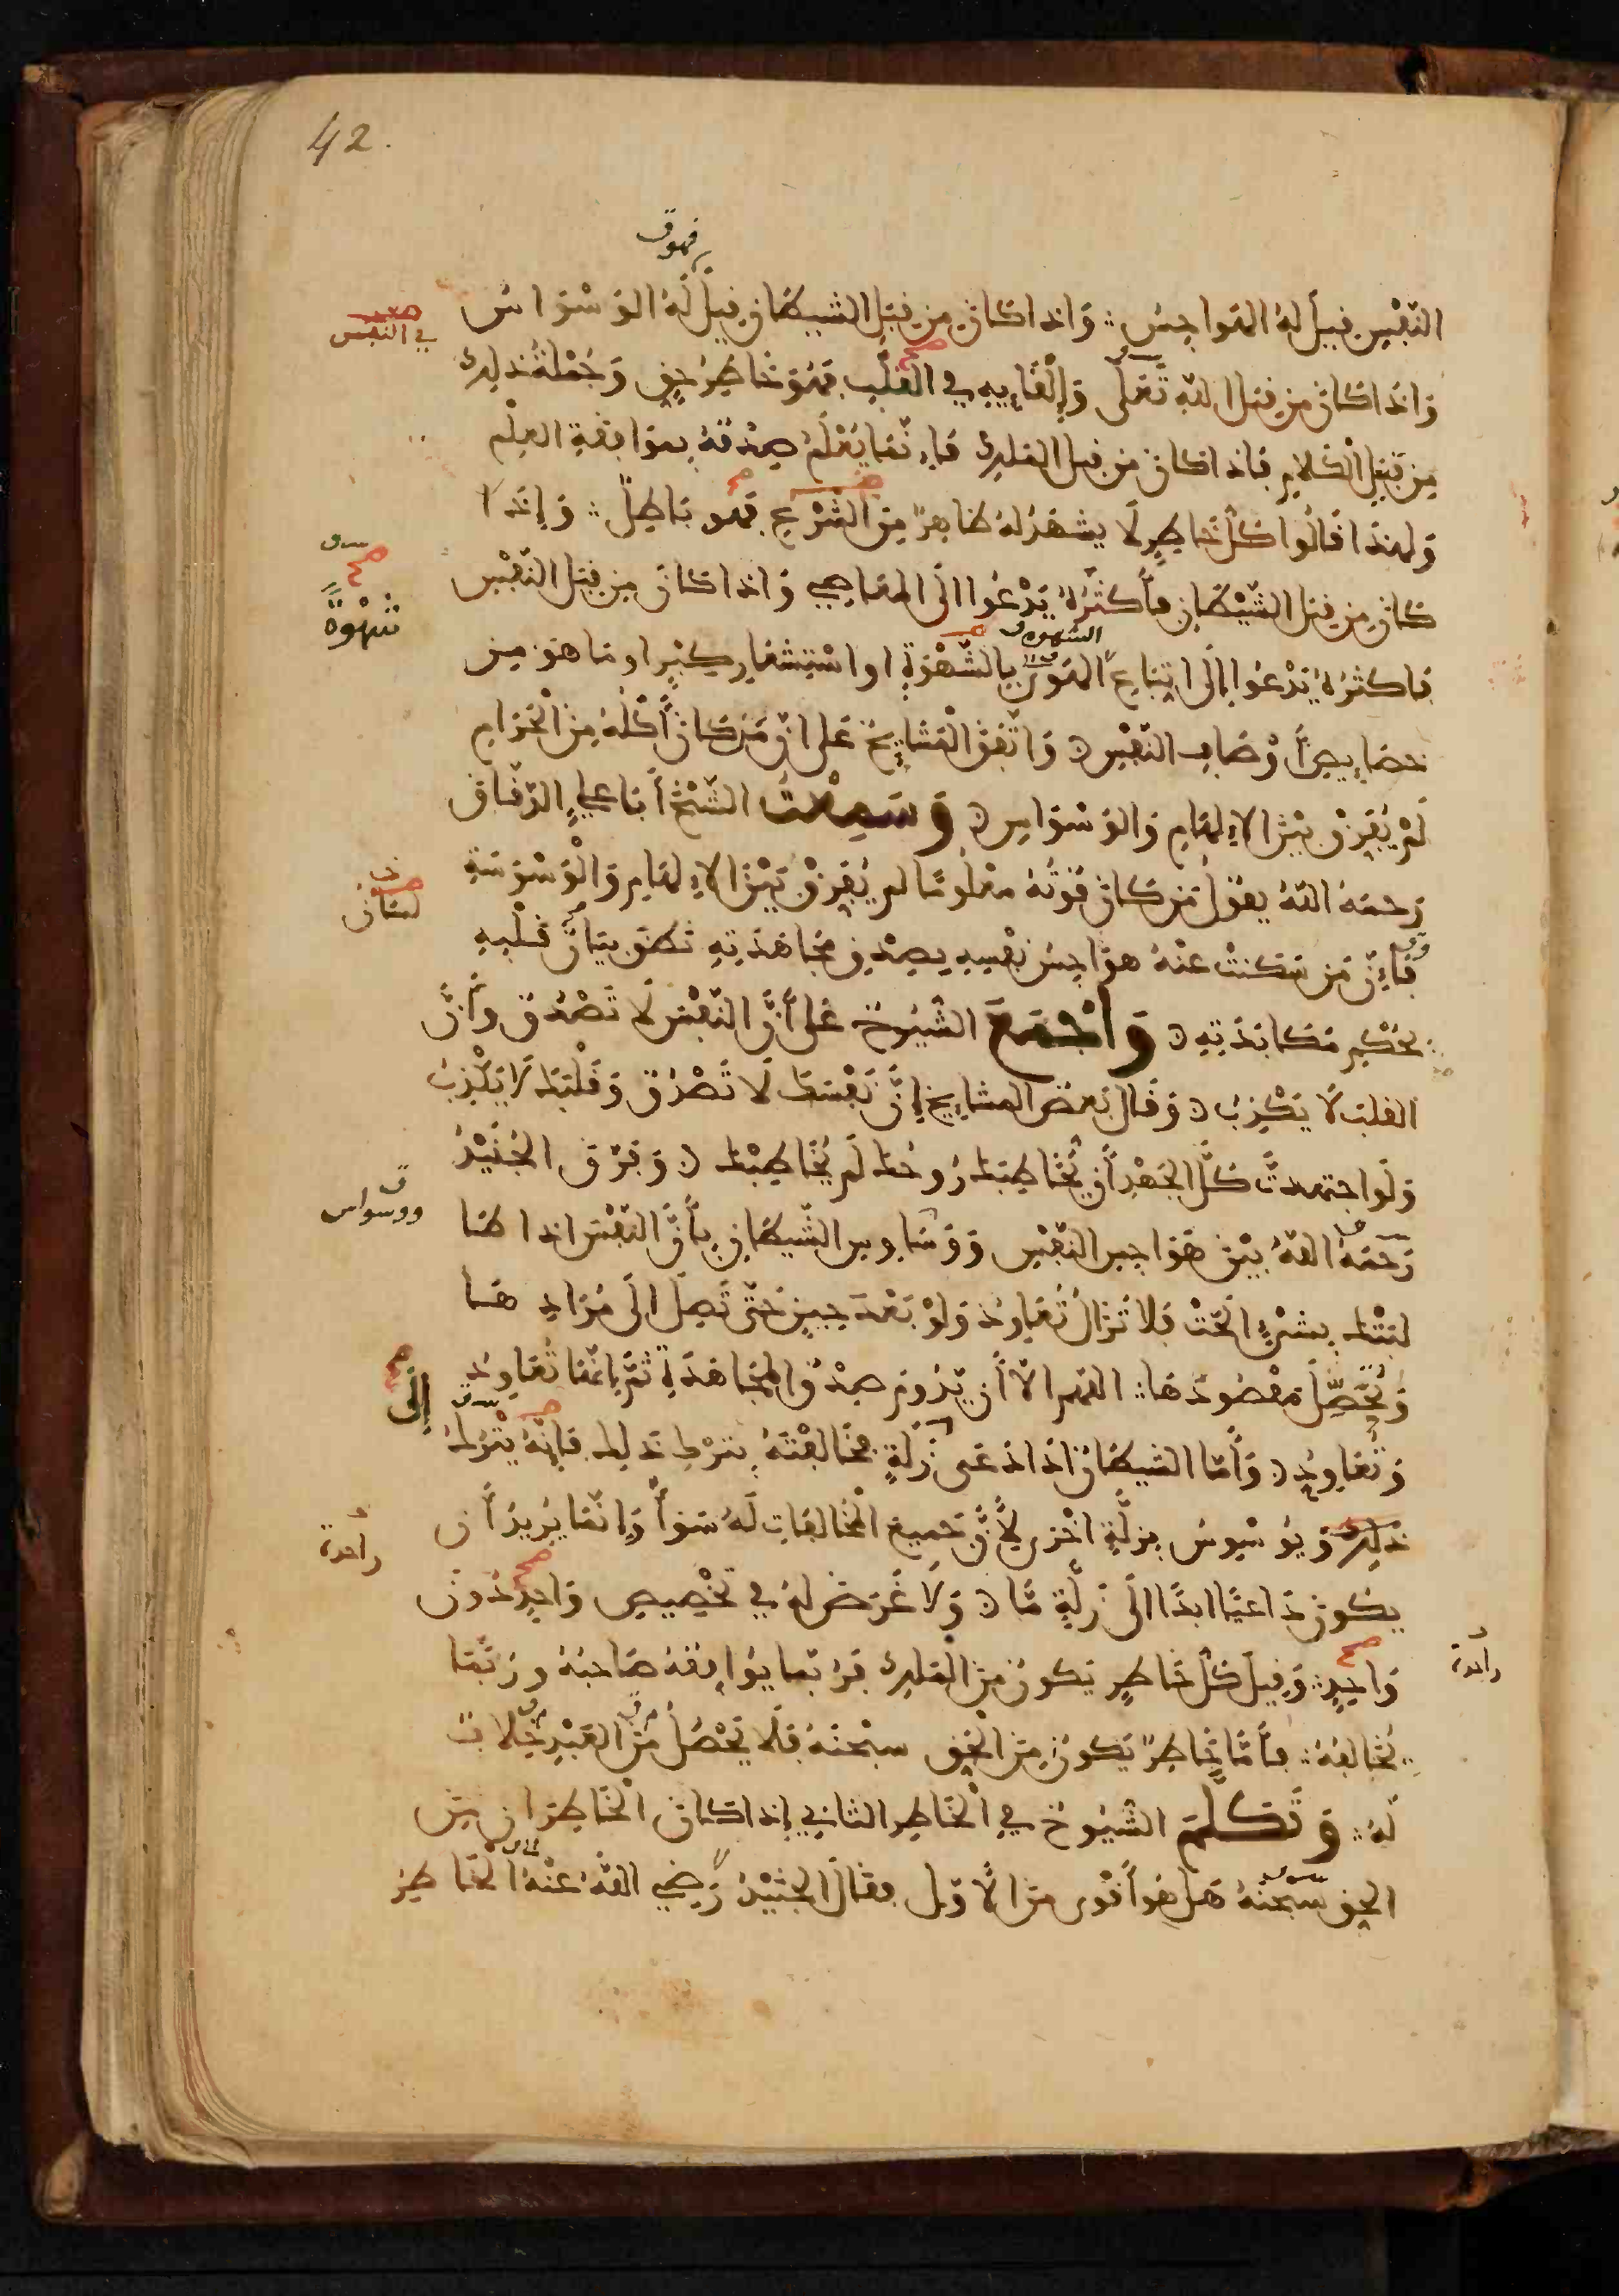 42.
فهو ق
النفس قيل له الهواجس ∴ واذا كان من قبل الشيطان قيل له الوسواس
في النفس
واذا كان من قبل الله تعلى وإلقايه في القلب فهو خاطر حق وجملة ذلك
من قبيل الكلام فاذا كان من قبل الملك فإنما يعلم صدقه بموافقة العلم
ولهذا قالوا كل خاطر لا يشهد له ظاهر من الشرع فهو باطل ∴ وإذا
كان من قبل الشيطان فأكثره يدعوا الى المعاصي واذا كان من قبل النفس
صح
شهوة
الشهوة
فاكثره يدعوا إلى اتباع الهوى بالشهوة او استشعار كبر او ما هو من
خصايص أوصاف النفس واتفق المشايخ على ان من كان أكله من الحرام
لم يفرق بين الإلهام والوسواس وسمعت الشيخ أبا علي الدقاق
رحمه الله يقول من كان قوته معلوما لم يفرق بين الإلهام والوسوسة
لسان
فإن من سكنت عنه هواجس نفسه بصدق مجاهدته نطق بيان قلبه
بحكم مكابدته وأجمع الشيوخ على أن النفس لا تصدق وأن
القلب لا يكذب وقال بعض المشايخ إن نفسك لا تصدق وقلبك لا يكذب
ولو اجتهدت كل الجهد أن تخاطبك روحك لم تخاطبك وفرق الجنيد
ووسواس
رحمه الله بين هواجس النفس ووساوس الشيطان بأن النفس اذا طا
لبتك بشيء الحت فلا تزال تعاود ولو بعد حين حتى تصل الى مراد ها
وتحصل مقصودها ∴ اللهم الا أن يدوم صدق المجاهدة ثم إنها تعاود
صح
إلى
وتعاود وأما الشيطان اذا دعى زلة فخالفته بترك ذلك فإنه يترك
ذلك ويوسوس بزلة اخرى لأن جميع المخالفات له سواء وانما يريد أن
واحدة
يكون داعيا ابدا الى زلة ما ولا غرض له في تخصيص واحد دون
صح
واحدة
واحد ∴ وقيل كل خاطر يكون من الملك فربما يوافقه صاحبه وربما
يخالفه ∴ فأما خاطر يكون من الحق سبحنه فلا يحصل من العبد خلاف
له ∴ وتكلم الشيوخ في الخاطر الثاني إذا كان الخاطران من
الحق سبحنه هل هو أقوى من الأول فقال الجنيد رضي الله عنه الخاطر